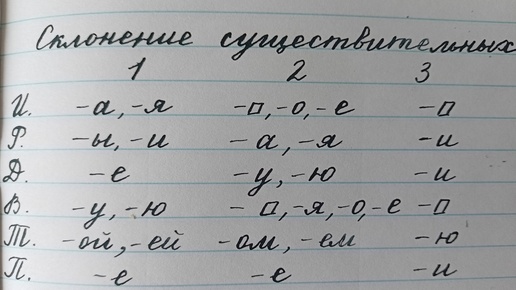 Склонение существительных
1 2 3
И. -а, -я -▯, -о, -е -▯
Р. -ы, -и -а, -я -и
Д. -е -у, -ю -и
В. -у, -ю -▯, -я, -о, -е -▯
Т. -ой, -ей -ом, -ем -ю
П. -е -е -и